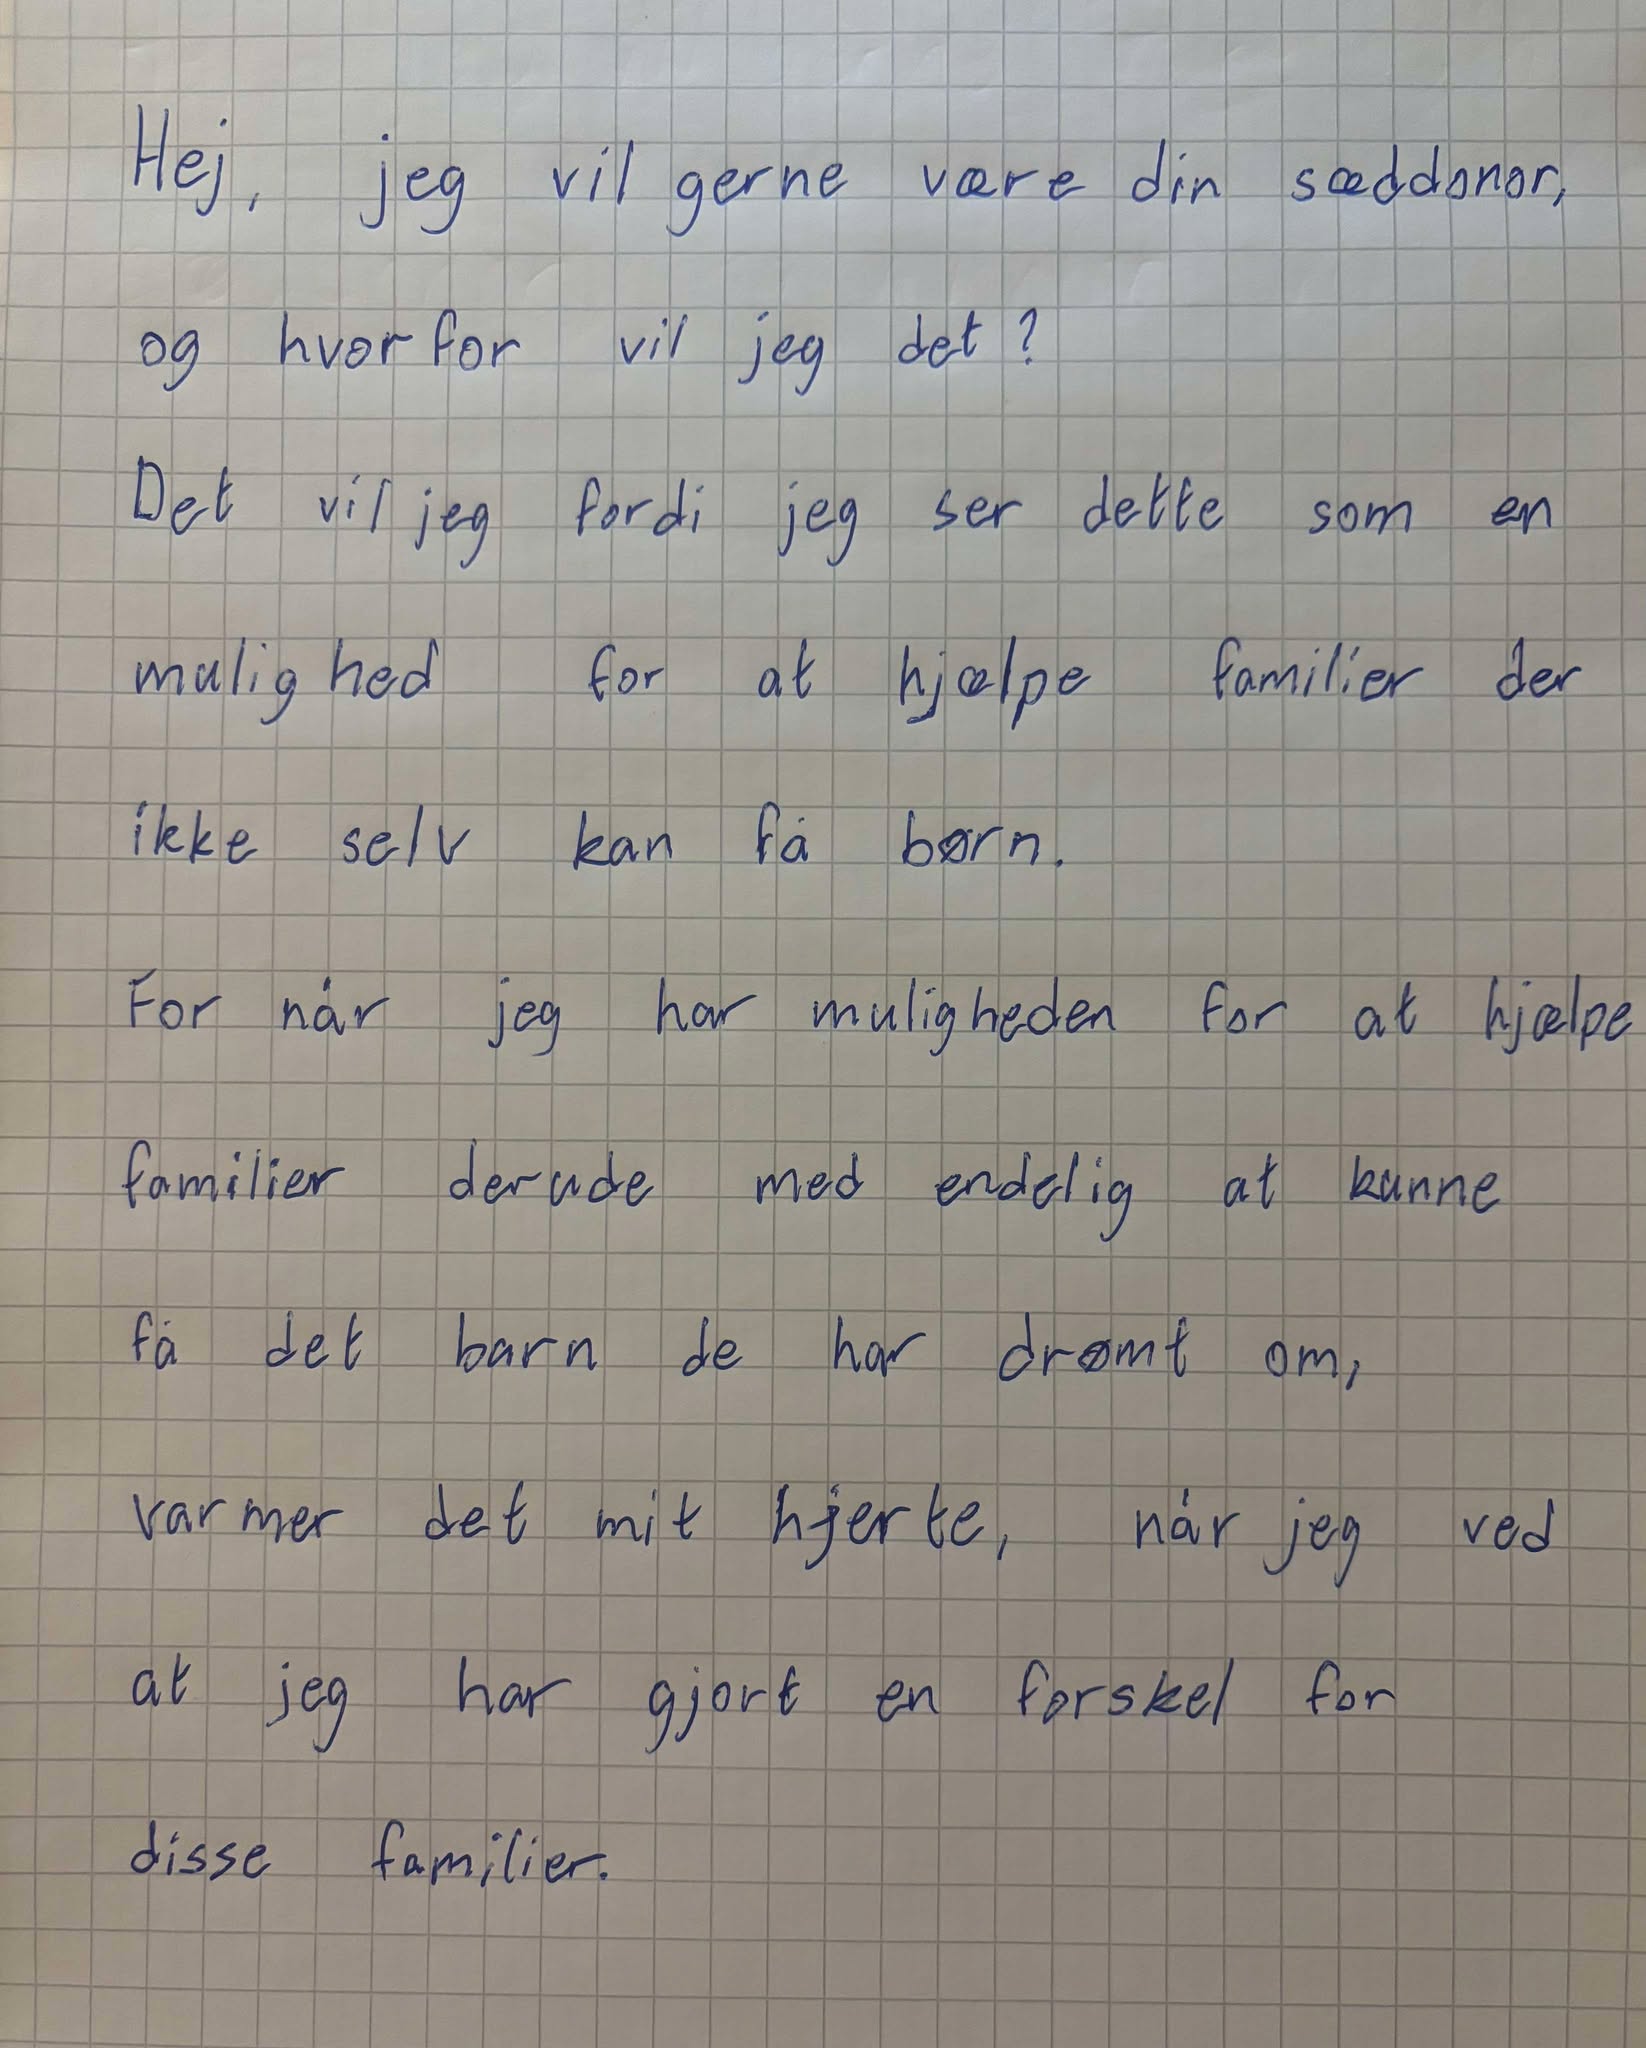 Hej, jeg vil gerne være din sæddonor,
og hvorfor vil jeg det?
Det vil jeg fordi jeg ser dette som en
mulighed for at hjælpe familier der
ikke selv kan få børn.
For når jeg har muligheden for at hjælpe
familier derude med endelig at kunne
få det barn de har drømt om,
varmer det mit hjerte, når jeg ved
at jeg har gjort en forskel for
disse familier.